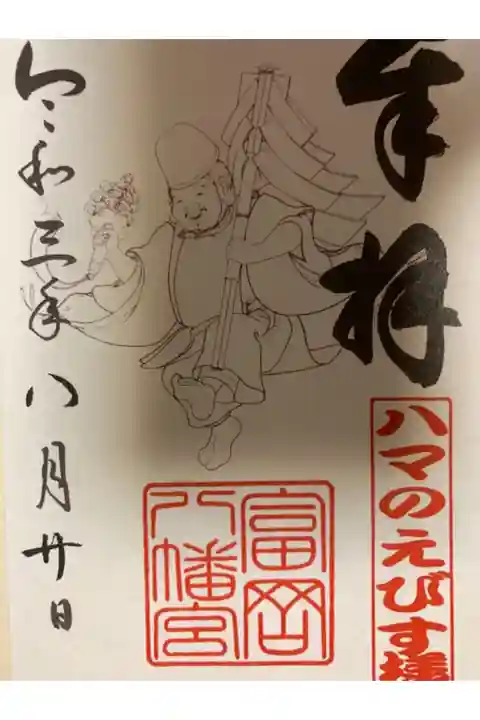 奉拝
ハマのえびす様
富岡
八幡宮
令和三年八月廿日